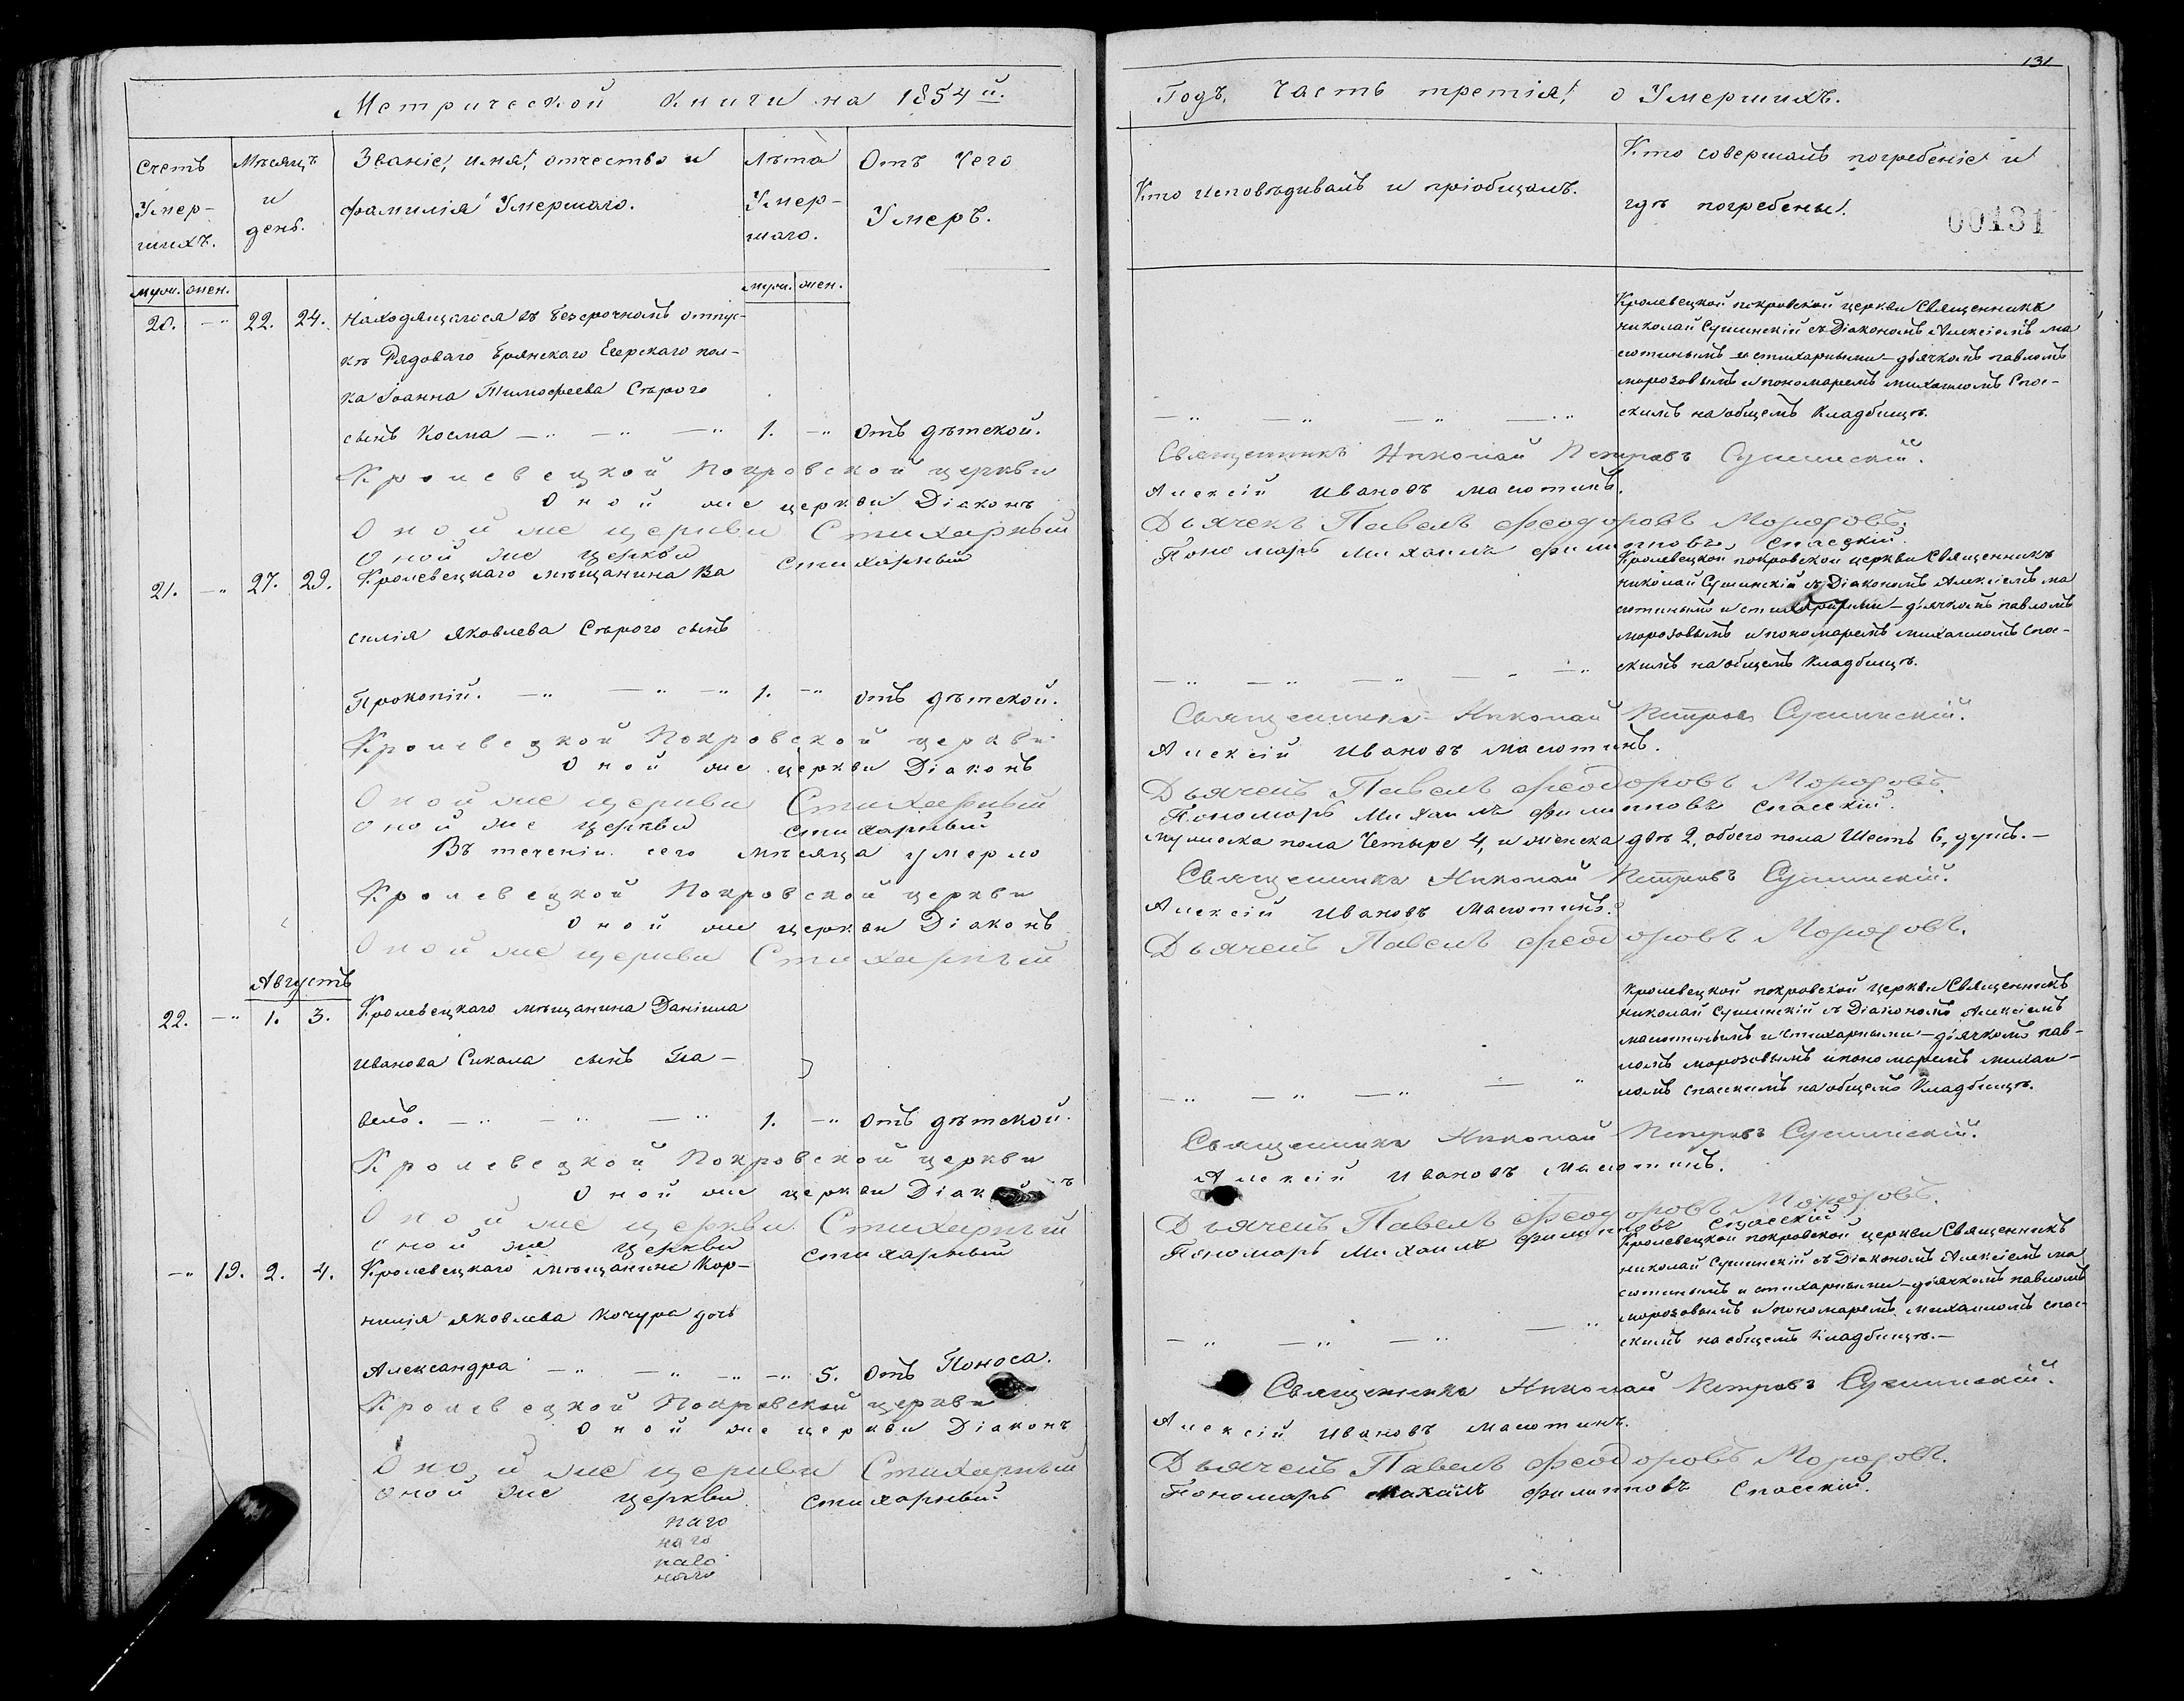 131
Метрической Книги на 1854й.
Счетъ Умершихъ.
Мѣсяцъ и день.
Званіе, имя, отчество и
фамилія Умершаго.
Лѣта Умершаго.
Отъ Чего
Умеръ.
муж. жен.
муж. жен.
20. —" 22. 24. Находящагося въ безсрочномъ отпус-
кѣ Рядоваго Брянскаго Егерскаго пол-
ка Іоанна Тимофеева Сѣрого
сынъ Косма —" —" —" 1. —" Отъ дѣтской.
Кролевецкой Покровской церкви
Оной же церкви Діаконъ
Оной же церкви Стихарный
Оной же церкви стихарный
21. —" 27. 29. Кролевецкаго мѣщанина Ва
силія Яковлева Сѣрого сынъ
Прокопій. —" —" —" 1. —" Отъ дѣтской.
Кролевецкой Покровской церкви
Оной же церкви Діаконъ
Оной же церкви Стихарный
Оной же церкви стихарный
Въ теченіи сего мѣсяца умерло
Кролевецкой Покровской церкви
Оной же церкви Діаконъ
Оной же церкви Стихарный
Августъ
22. —" 1. 3. Кролевецкаго мѣщанина Даніила
Иванова Сикала сынъ Па-
велъ. —" —" —" 1. —" Отъ дѣтской.
Кролевецкой Покровской церкви
Оной же церкви Діаконъ
Оной же церкви Стихарный
Оной же церкви стихарный
—" 19. 2. 4. Кролевецкаго мѣщанина Кор-
нилія Яковлева Кочура дочь
Александра —" —" —" —" 5. Отъ Поноса.
Кролевецкой Покровской церкви
Оной же церкви Діаконъ
Оной же церкви Стихарный
Оной же церкви стихарный
наго
наго
наго
наго
Годъ, Часть третія, о Умершихъ.
Кто исповѣдивалъ и пріобщалъ.
Кто совершалъ погребеніе и
гдѣ погребены.
00131
Кролевецкой покровской церкви Священникъ
николай Сушинскій съ Діакономъ Алексіемъ ма
сютинымъ и стихарными — дьячкомъ павломъ
морозовымъ и пономаремъ михаиломъ Спас-
скимъ на общемъ Кладбищѣ.
Священникъ Николай Петровъ Сушинскій.
Алексій Ивановъ Масютинъ.
Дьячекъ Павелъ Феодоровъ Морозовъ.
Пономарь Михаилъ Филипповъ Спасскій.
Кролевецкой покровской церкви Священникъ
николай Сушинскій съ Діакономъ Алексіемъ ма
сютинымъ и стихарными — дьячкомъ павломъ
морозовымъ и пономаремъ михаиломъ спас-
скимъ на общемъ Кладбищѣ.
Священникъ Николай Петровъ Сушинскій.
Алексій Ивановъ Масютинъ.
Дьячекъ Павелъ Феодоровъ Морозовъ.
Пономарь Михаилъ Филипповъ Спасскій.
мужеска пола Четыре 4, и женска двѣ 2, обоего пола Шесть 6, душъ.—
Священникъ Николай Петровъ Сушинскій.
Алексій Ивановъ Масютинъ.
Дьячекъ Павелъ Феодоровъ Морозовъ.
Кролевецкой покровской церкви Священникъ
николай Сушинскій съ Діакономъ Алексіемъ
масютинымъ и стихарными — дьячкомъ пав-
ломъ морозовымъ и пономаремъ михаи-
ломъ спасскимъ на общемъ Кладбищѣ.
Священникъ Николай Петровъ Сушинскій.
Алексій Ивановъ Масютинъ.
Дьячекъ Павелъ Феодоровъ Морозовъ.
Пономарь Михаилъ Филипповъ Спасскій.
Кролевецкой покровской церкви Священникъ
николай Сушинскій съ Діакономъ Алексіемъ ма
сютинымъ и стихарными — дьячкомъ павломъ
морозовымъ и пономаремъ михаиломъ спас-
скимъ на общемъ Кладбищѣ.—
Священникъ Николай Петровъ Сушинскій.
Алексій Ивановъ Масютинъ.
Дьячекъ Павелъ Феодоровъ Морозовъ.
Пономарь Михаилъ Филипповъ Спасскій.